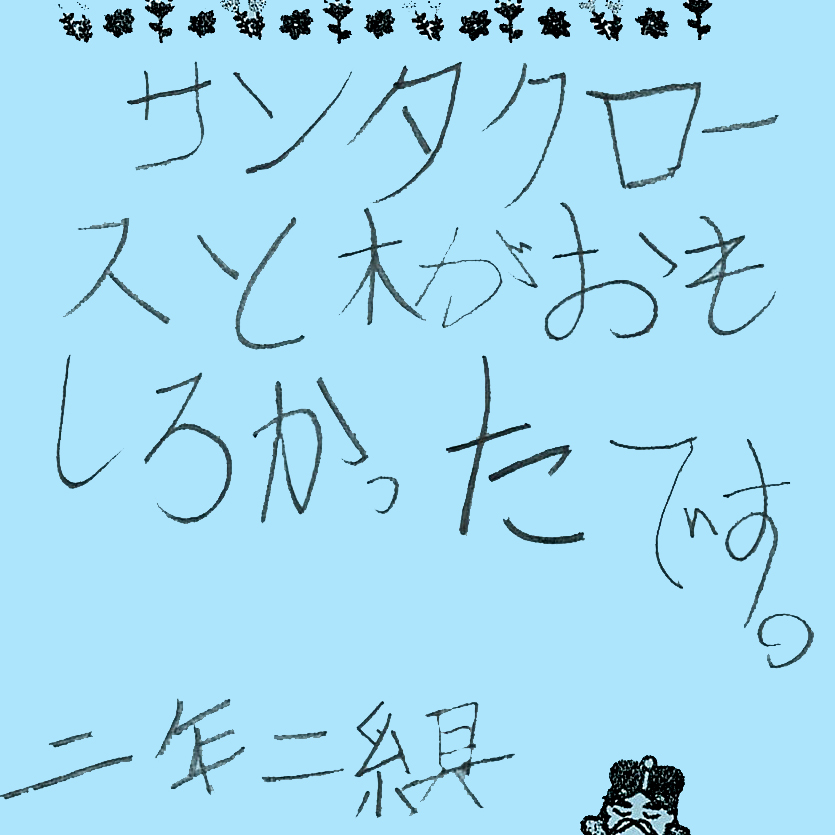 サンタクロー
スと木がおも
しろかったです。
二年二組